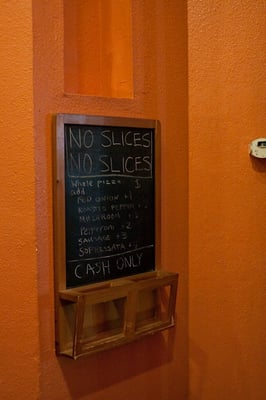 NO SLICES
NO SLICES
Whole pizza $
add
RED ONION +1
ROASTED PEPPER +
MUSHROOM +
PEPPERONI +2
SAUSAGE +3
SOPRESSATA +
CASH ONLY